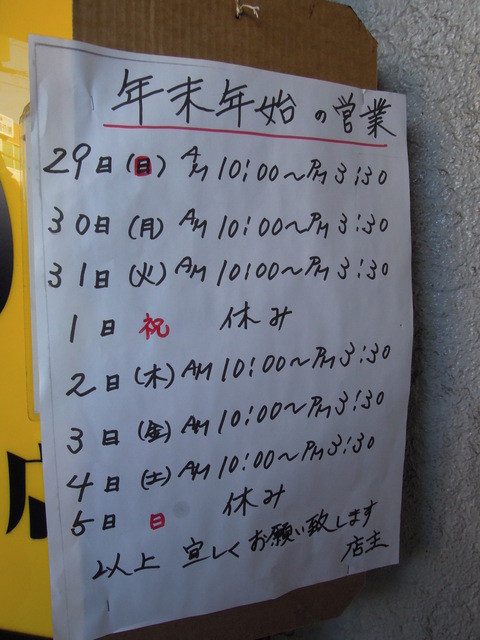 年末年始の営業
29日(日) AM 10:00～PM 3:30
30日(月) AM 10:00～PM 3:30
31日(火) AM 10:00～PM 3:30
1日 祝 休み
2日(木) AM 10:00～PM 3:30
3日(金) AM 10:00～PM 3:30
4日(土) AM 10:00～PM 3:30
5日 日 休み
以上 宜しくお願い致します
店主